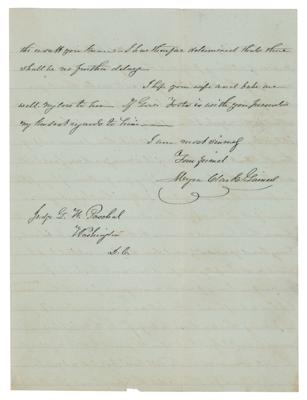 the result you know. I have therefore determined that there
shall be no further delay.
I hope your wife and babe are
well. My love to them. If Gov is with you present
my kindest regards to him—
I am most sincerely
Your friend
Myra Clark Gaines
Judge G. W. Paschal
Washington
D.C.